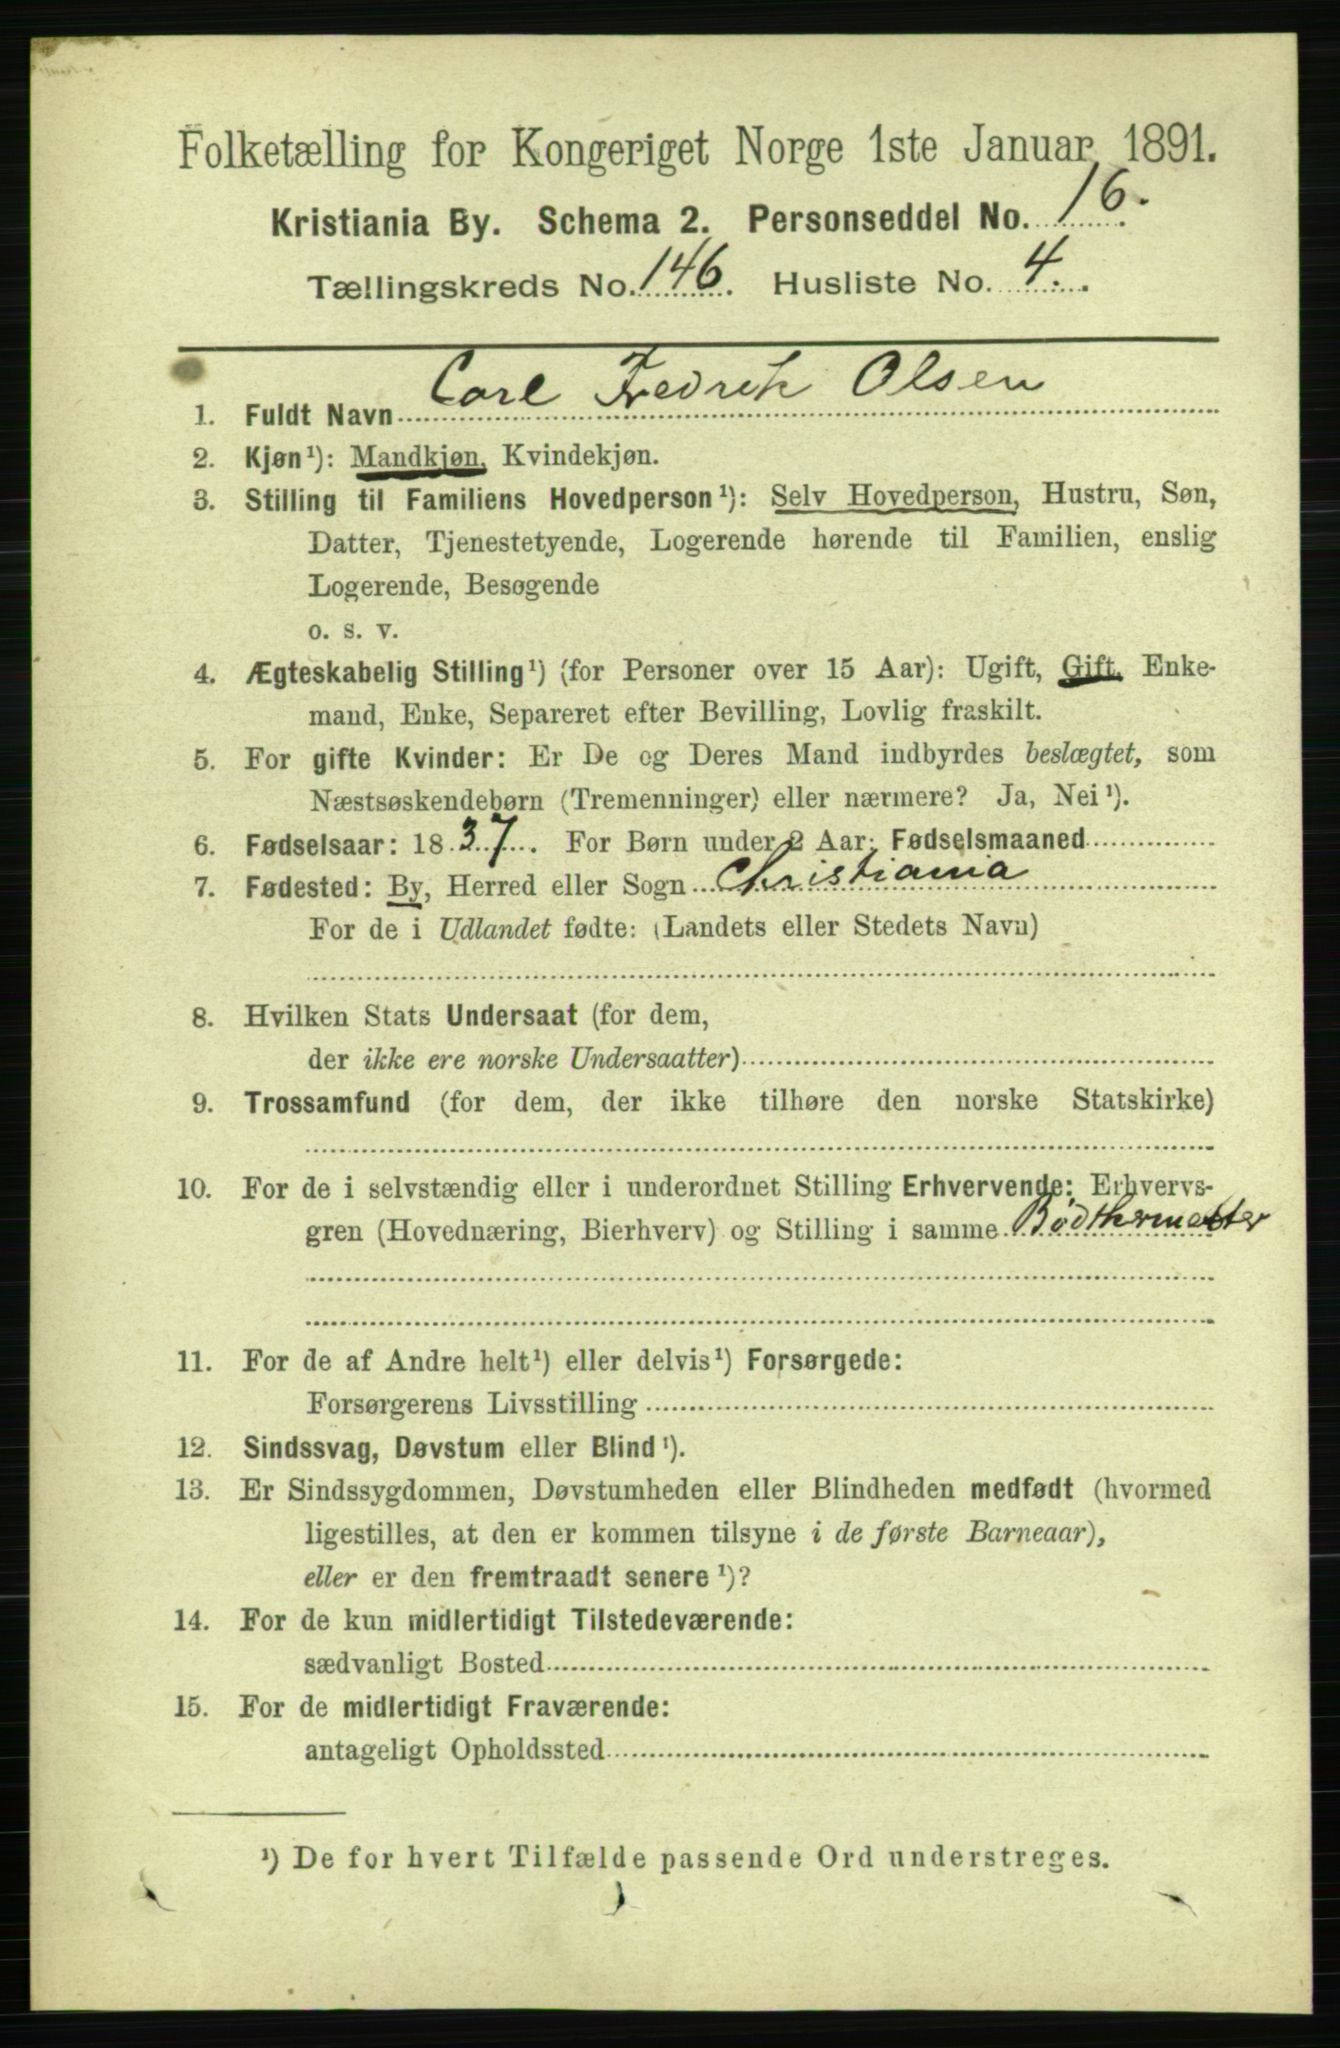 Folketælling for Kongeriget Norge 1ste Januar 1891.
Kristiania By. Schema 2. Personseddel No. 16.
Tællingskreds No. 146. Husliste No. 4.
1. Fuldt Navn Carl Fredrik Olsen
2. Kjøn¹): Mandkjøn, Kvindekjøn.
3. Stilling til Familiens Hovedperson¹): Selv Hovedperson, Hustru, Søn,
Datter, Tjenestetyende, Logerende hørende til Familien, enslig
Logerende, Besøgende
o. s. v.
4. Ægteskabelig Stilling¹) (for Personer over 15 Aar): Ugift, Gift, Enke-
mand, Enke, Separeret efter Bevilling, Lovlig fraskilt.
5. For gifte Kvinder: Er De og Deres Mand indbyrdes beslægtet, som
Næstsøskendebørn (Tremenninger) eller nærmere? Ja, Nei¹).
6. Fødselsaar: 1837. For Børn under 2 Aar: Fødselsmaaned
7. Fødested: By, Herred eller Sogn Christiania
For de i Udlandet fødte: (Landets eller Stedets Navn)
8. Hvilken Stats Undersaat (for dem,
der ikke ere norske Undersaatter)
9. Trossamfund (for dem, der ikke tilhøre den norske Statskirke)
10. For de i selvstændig eller i underordnet Stilling Erhvervende: Erhvervs-
gren (Hovednæring, Bierhverv) og Stilling i samme Bødkermester
11. For de af Andre helt¹) eller delvis¹) Forsørgede:
Forsørgerens Livsstilling
12. Sindssvag, Døvstum eller Blind¹).
13. Er Sindssygdommen, Døvstumheden eller Blindheden medfødt (hvormed
ligestilles, at den er kommen tilsyne i de første Barneaar),
eller er den fremtraadt senere¹)?
14. For de kun midlertidigt Tilstedeværende:
sædvanligt Bosted
15. For de midlertidigt Fraværende:
antageligt Opholdssted
¹) De for hvert Tilfælde passende Ord understreges.